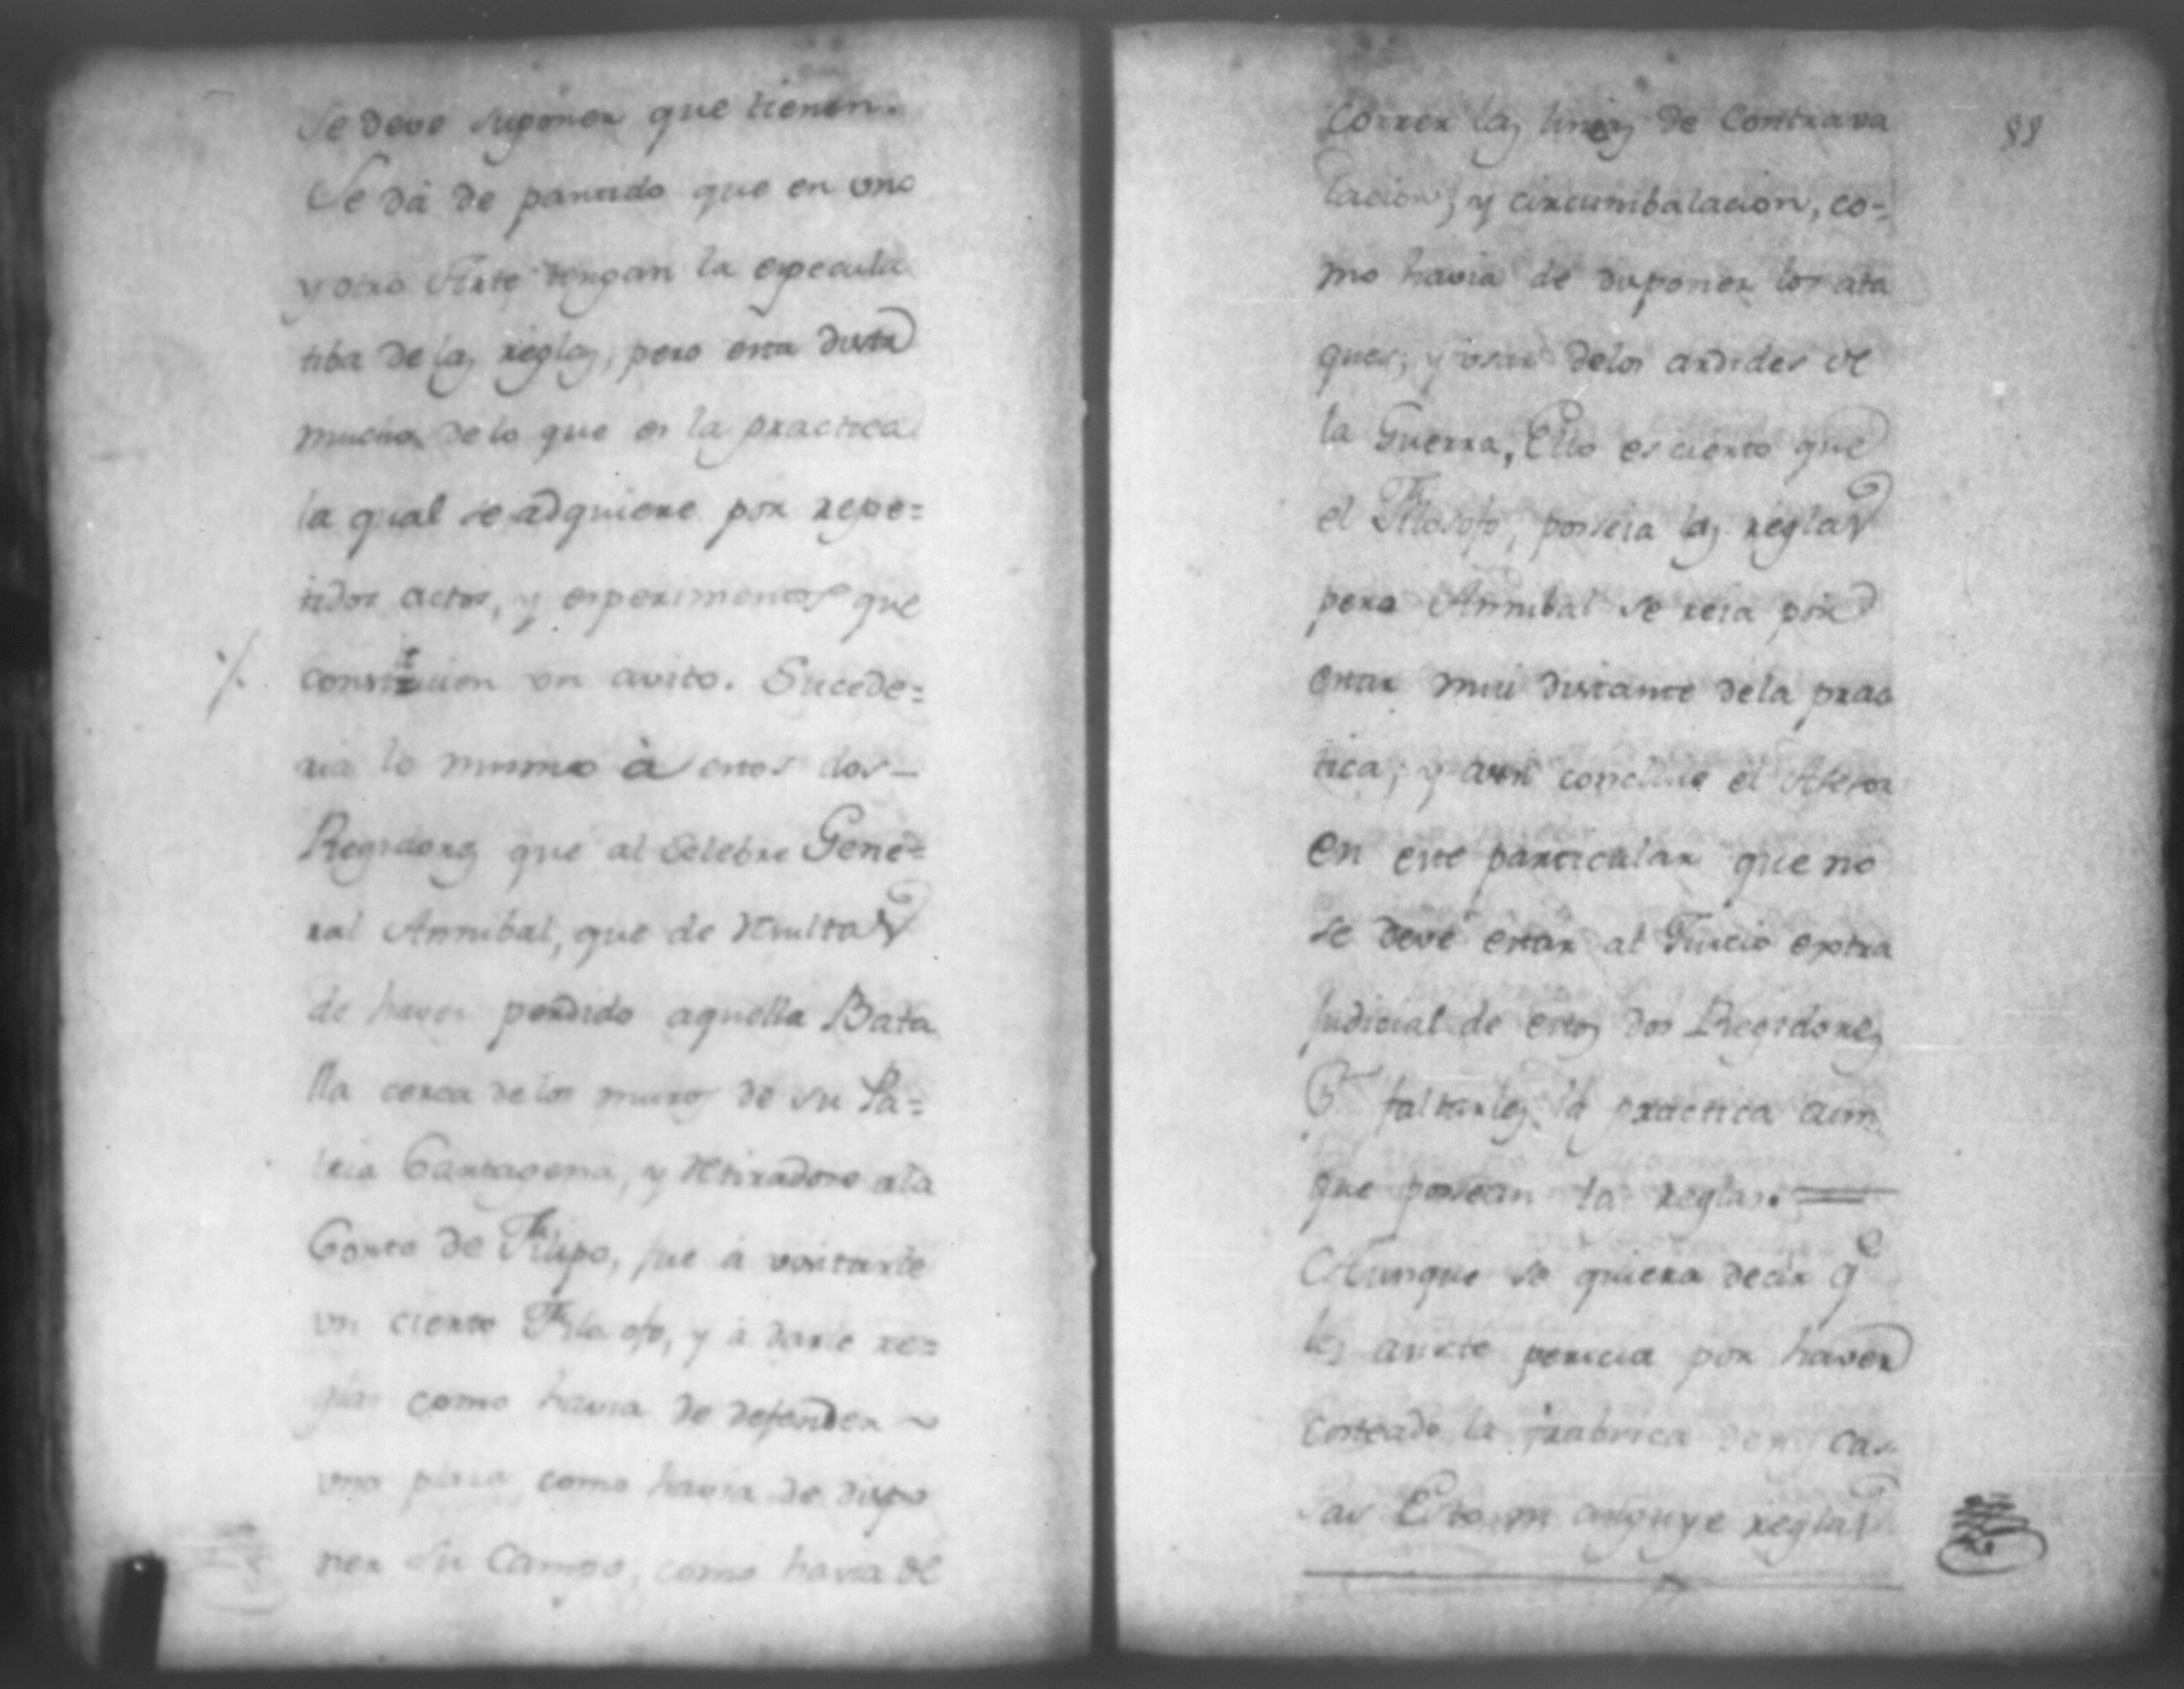 se deve suponer que tienen.
Se dà de partido que en uno
y otro Arte tengan la especula
tiba de las reglas, pero esta dista
mucho de lo que es la practica
la qual se adquiere por repe=
tidos actos, y esperimentos que
constituien un avito. Sucede=
ria lo mismo à estos dos
Regidores que al celebre Gene=
ral Annibal, que de resultas
de haver perdido aquella Bata
lla cerca de los muros de su Pa=
tria Cartagena, y retiradose a la
Corte de Filipo, fue à visitarle
un cierto Filosofo, y à darle re=
glas como havia de defender
una plaza como havia de dispo
ner su Campo, como havia de
88
Correr las lineas de Contrava
lacion, y circumbalacion, co-
mo havia de disponer los ata
ques, y usar de los ardides de
la Guerra, Ello es cierto que
el Filosofo, posseia las reglas
pero Annibal se reia por
estar mui distante de la prac
tica; y assi concluie el Asesor
en este particular que no
se deve estar al Juicio extra
judicial de estos dos Regidores
faltarles la practica aun
que posean las reglas.
Aunque se quiera decir qe
les asiste pericia por haver
costeado la fabrica de sus ca
sas Esto no arguye reglas